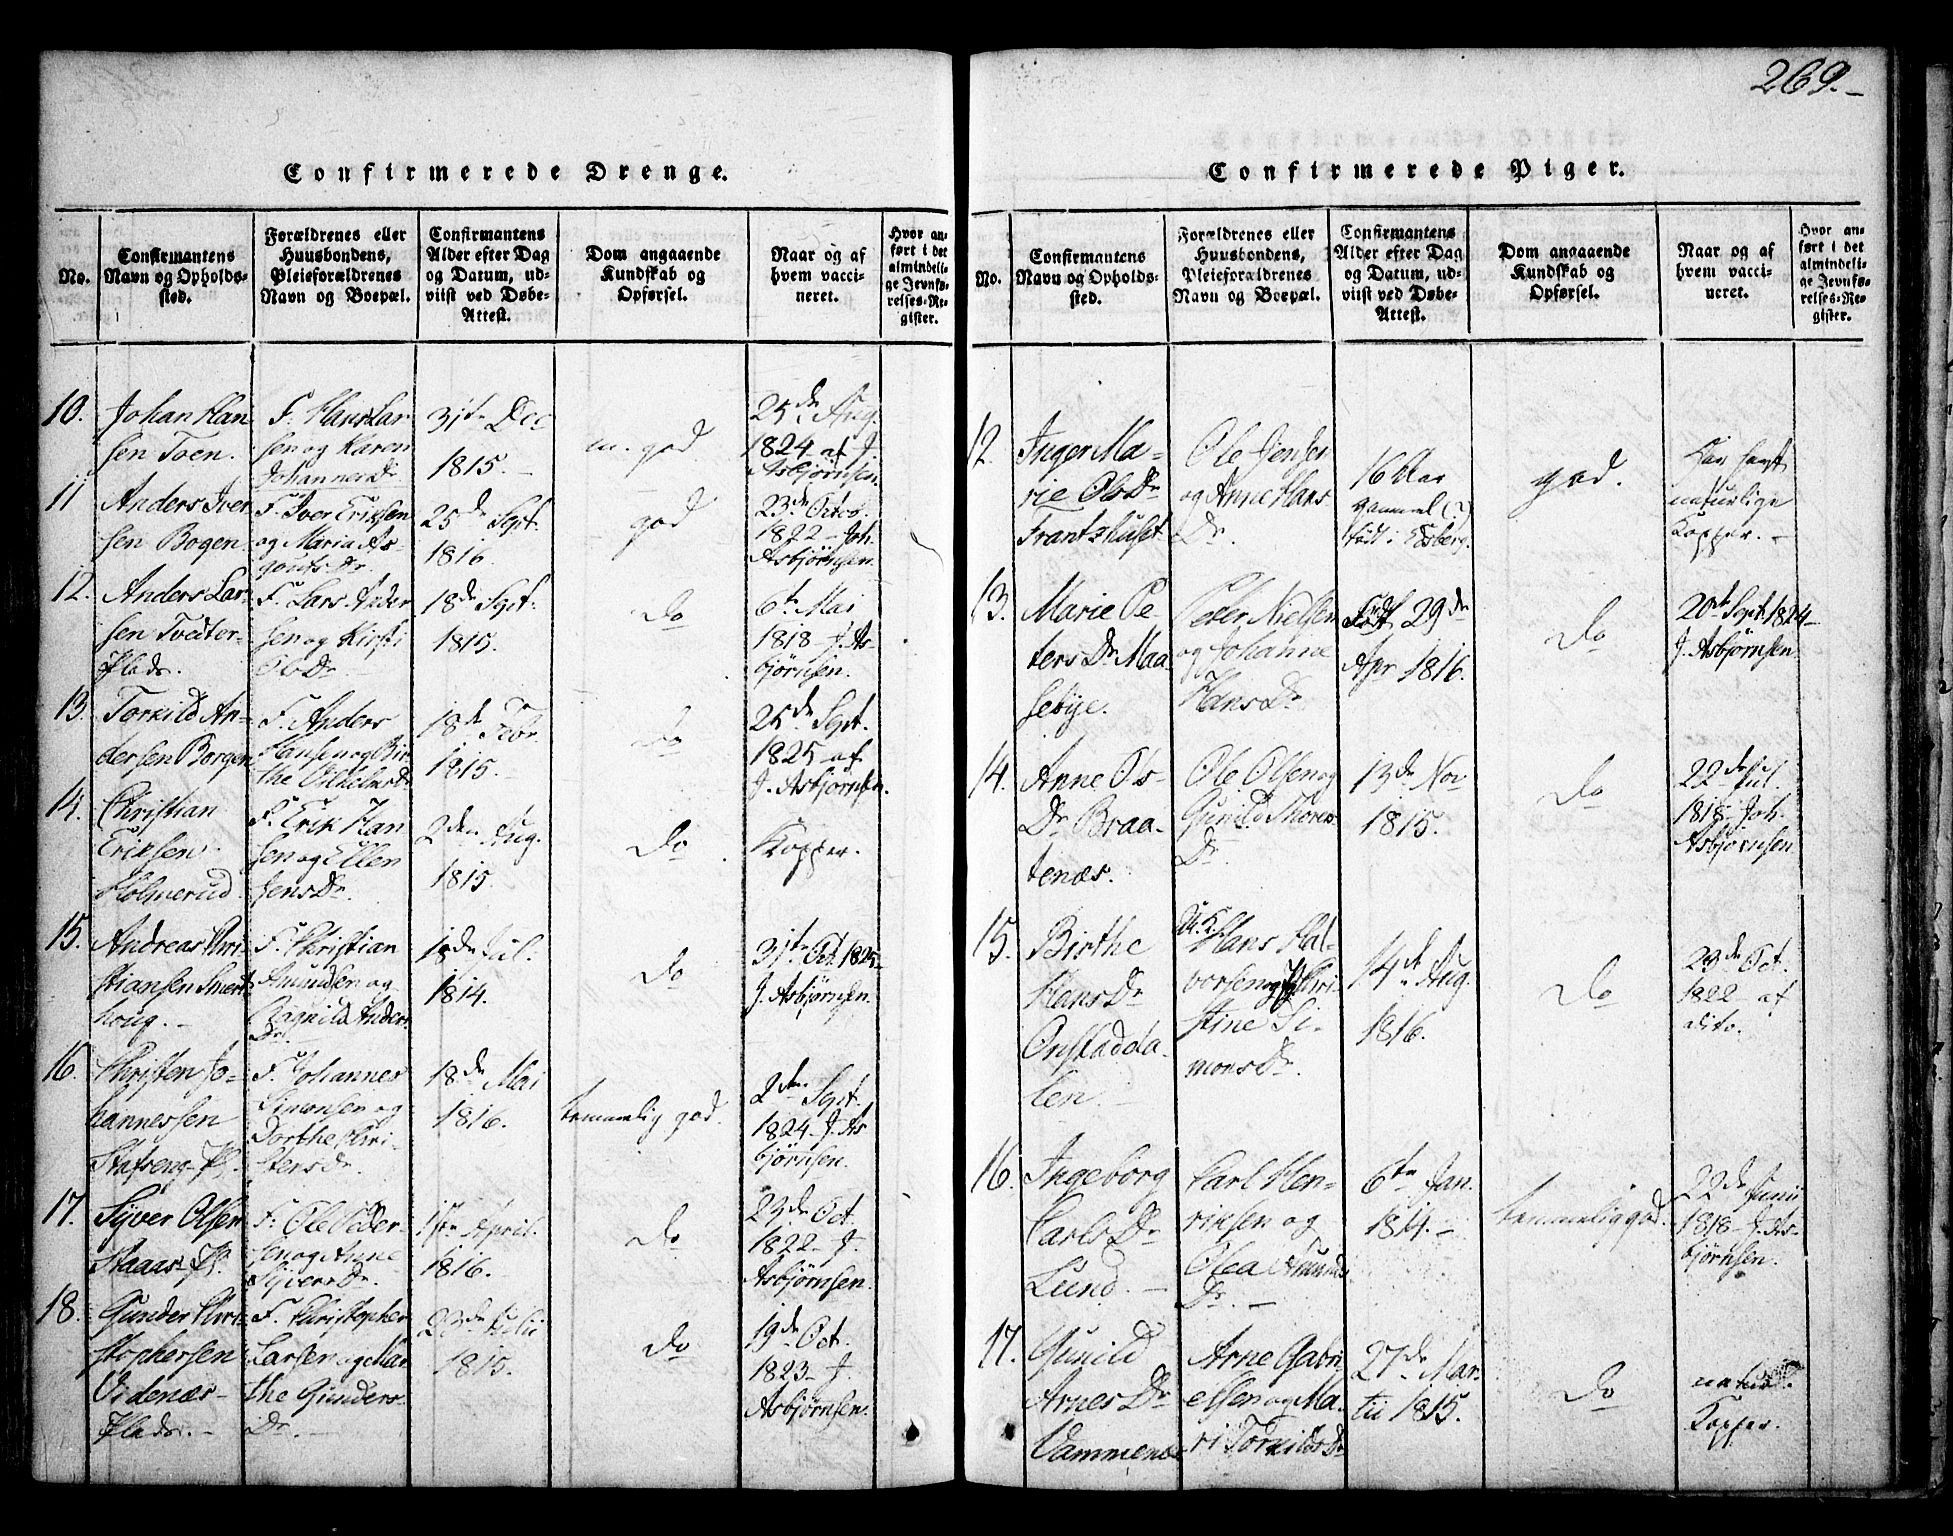 269.
Confirmerede Drenge.
No.
Confirmantens
Navn og Opholds-
sted.
Forældrenes eller
Huusbondens,
Pleieforældrenes
Navn og Boepæl.
Confirmantens
Alder efter Dag
og Datum, ud-
viist ved Døbe-
Attest.
Dom angaaende
Kundskab og
Opførsel.
Naar og af
hvem vacci-
neret.
Hvor an-
ført i det
almindeli-
ge Jevnfø-
relses-Re-
gister.
10.
Johan Han
sen Toen.
F. Hans Lar
sen og Karen
Johannes Dr
31te Dec
1815.
m. god
25de Aug.
1824 af J.
Asbjørnsen
11
Anders Iver
sen Bogen
F. Iver Eriksen
og Maria As-
gouts Dr.
25de Sept.
1816.
god
23de Octob.
1822 - Joh.
Asbjörnsen.
12.
Anders Lar-
sen Tvedter-
Plads.
F. Lars Ander
sen og Kirsti
Ols Dr.
18de Sept.
1815.
do
6te Mai
1818 - J. As-
bjørnsen.
13.
Torkild An-
dersen Borgen
F. Anders
Hansen og Bir-
the
18de Febr.
1815.
do
25de Sept.
1825 af
J. Asbjörnsen.
14.
Christian
Eriksen
Holmerud.
F. Erik Han
sen og Ellen
Jens Dr.
2den Aug.
1815.
do
Kopper.
15.
Andreas Chri-
stiansen
houg.
F. Christian
Amundsen og
Ragnild Anders
Dr.
18de Jul.
1814.
do
31te Oct. 1825
J. Asbjørnsen.
16.
Christen Jo-
hannessen
Stafseng-Pl.
F. Johannes
Simonsen og
Dorthe Chri-
stens Dr.
18de Mai
1816.
temmelig god.
2den Sept.
1824 - J. As
bjørnsen.
17.
Syver Olsen
Haaes-Pl.
F. Ole Peder-
sen og Anne
Syvers Dr.
April.
1816.
do
23de Oct.
1822 - J.
Asbjörnsen.
18.
Gunder Chri-
stophersen
Videnæs-
Plads. -
F. Christopher
Larsen og Mar
the Gunders-
Dr. -
23de Julii
1815.
do
19de Oct.
1823 - J.
Asbjørnsen
Confirmerede Piger.
No.
Confirmantens
Navn og Opholds-
sted.
Forældrenes eller
Huusbondens,
Pleieforældrenes
Navn og Boepæl.
Confirmantens
Alder efter Dag
og Datum, ud-
viist ved Døbe-
Attest.
Dom angaaende
Kundskab og
Opførsel.
Naar og af
hvem vacci-
neret.
Hvor an-
ført i det
almindeli-
ge Jevnfø-
relses-Re-
gister.
12.
Inger Ma-
rie Ols Dr
Frantzhuset
Ole Jensen
og Anne Hans
Dr.
16 Aar
gammel (?)
født i Edsberg.
god.
Har havt
naturlige
Kopper. -
13.
Marie Pe-
ters Dr Maa-
sebye.
Peter Nielsen
og Johanne
Hans Dr
Født 29de
Apr 1816.
do
20de Sept. 1824
J. Asbjørnsen.
14.
Anne Ols-
Dr Braa-
tenæs.
Ole Olsen og
Gunild Thores-
Dr.
13de Nov
1815.
do
22de Jul.
1818 - Joh.
Asbjørnsen
15.
Birthe
Hans Dr
Onstadda-
len. -
Hans Hal-
vorsen og Chri-
stine Si-
mons Dr.
14de Aug.
1816.
do
23de Oct.
1822 af
dito.
16.
Ingeborg
Carls Dr
Lund. -
Carl Hen-
riksen og
Olea Amunds
Dr. -
6te Jan.
1814. -
temmelig god.
22de Junii
1818 - J. As-
bjørnsen.
17.
Gunild
Arnes Dr
Vammenæs
Arne Gabri
elsen og Ma-
ri Torkilds Dr
27de Mar-
tii 1815.
do
naturl.
Kopper.